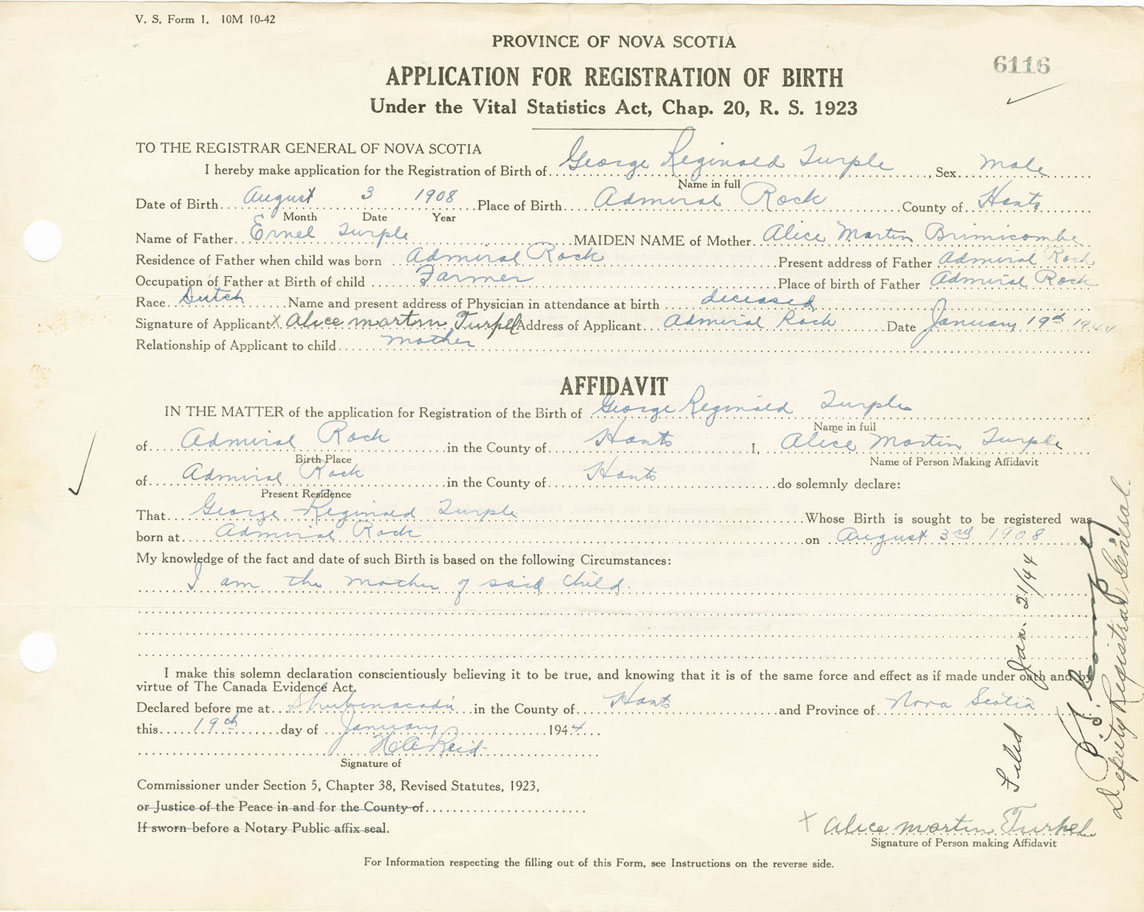 V. S. Form 1. 10M 10-42
PROVINCE OF NOVA SCOTIA
6116
APPLICATION FOR REGISTRATION OF BIRTH
Under the Vital Statistics Act, Chap. 20, R. S. 1923
TO THE REGISTRAR GENERAL OF NOVA SCOTIA
I hereby make application for the Registration of Birth of George Reginald Turple, Sex Male
Name in full
Date of Birth August 3 1908 Place of Birth Admiral Rock County of Hants
Month Date Year
Name of Father Ernel Turple MAIDEN NAME of Mother Alice Martin Brimicombe
Residence of Father when child was born Admiral Rock Present address of Father Admiral Rock
Occupation of Father at Birth of child Farmer Place of birth of Father Admiral Rock
Race Dutch Name and present address of Physician in attendance at birth deceased
Signature of Applicant X Alice martin Turpel Address of Applicant Admiral Rock Date January 19th 1944
Relationship of Applicant to child mother
AFFIDAVIT
IN THE MATTER of the application for Registration of the Birth of George Reginald Turple
Name in full
of Admiral Rock in the County of Hants I, Alice Martin Turple
Birth Place Name of Person Making Affidavit
of Admiral Rock in the County of Hants do solemnly declare:
Present Residence
That George Reginald Turple Whose Birth is sought to be registered was
born at Admiral Rock on August 3rd 1908
My knowledge of the fact and date of such Birth is based on the following Circumstances:
I am the mother of said child.
I make this solemn declaration conscientiously believing it to be true, and knowing that it is of the same force and effect as if made under oath and by
virtue of The Canada Evidence Act.
Declared before me at Shubenacadie in the County of Hants and Province of Nova Scotia
this 19th day of January 1944
H A Reid
Signature of
Commissioner under Section 5, Chapter 38, Revised Statutes, 1923,
or Justice of the Peace in and for the County of
If sworn before a Notary Public affix seal.
X Alice martin Turpel
Signature of Person making Affidavit
For Information respecting the filling out of this Form, see Instructions on the reverse side.
Filed Jan. 21/44
Deputy Registrar General.